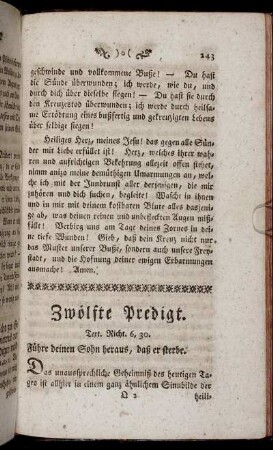 )o(
243
geschwinde und vollkommene Buße! — Du hast
die Sünde überwunden; ich werde, wie du, und
durch dich über dieselbe siegen! — Du hast sie durch
den Kreuzestod überwunden; ich werde durch heilsa-
me Ertödtung eines bußfertig und gekreuzigten Lebens
über selbige siegen!
Heiliges Herz, meines Jesu! das gegen alle Sün-
der mit Liebe erfüllet ist! Herz, welches ihrer wah-
ren und aufrichtigen Bekehrung allezeit offen stehet,
nimm anizo meine demüthigen Umarmungen an, wel-
che ich mit der Innbrunst aller derjenigen, die mir
zuhören und dich suchen, begleite! Wasche in ihnen
und in mir mit deinem kostbaren Blute alles dasjeni-
ge ab, was deinen reinen und unbefleckten Augen miß-
fällt! Verbirg uns am Tage deines Zornes in dei-
ne tiefe Wunden! Gieb, daß dein Kreuz nicht nur
das Muster unserer Buße, sondern auch unsere Frey-
stadt, und die Hofnung deiner ewigen Erbarmungen
ausmache! Amen.
Zwölfte Predigt.
Text. Richt. 6, 30.
Führe deinen Sohn heraus, daß er sterbe.
Das unaussprechliche Geheimniß des heutigen Ta-
ges ist allhier in einem ganz ähnlichem Sinnbilde der
Q 2
heili-